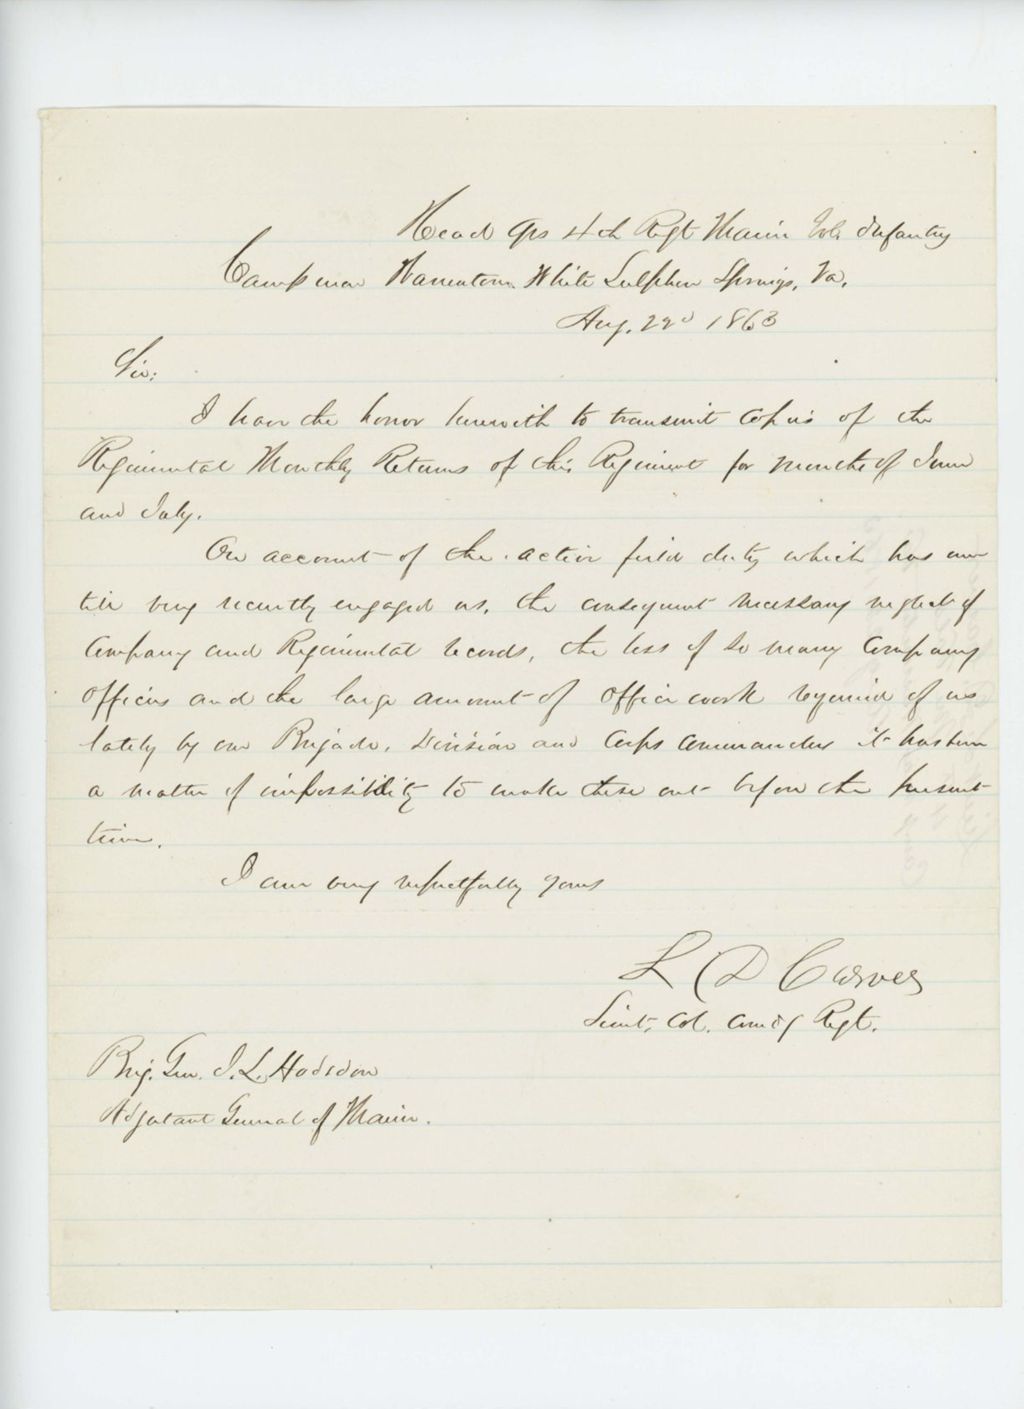 Head Qrs 4th Regt Maine Vols Infantry
Camp near Warrenton White Sulphur Springs, Va,
Aug. 22d 1863
Sir:
I have the honor herewith to transmit copies of the
Regimental Monthly Returns of this Regiment for months of June
and July.
On account of the active field duty which has un
till very recently engaged us, the consequent necessary neglect of
Company and Regimental records, the loss of so many Company
officers and the large amount of office work required of us
lately by our Brigade, Division and Corps Commanders it has been
a matter of impossibility to make these out before the present
time.
I am very respectfully yours
L D Carver
Lieut, Col. Comdg Regt.
Brig. Gen. J. L. Hodsdon
Adjutant General of Maine.